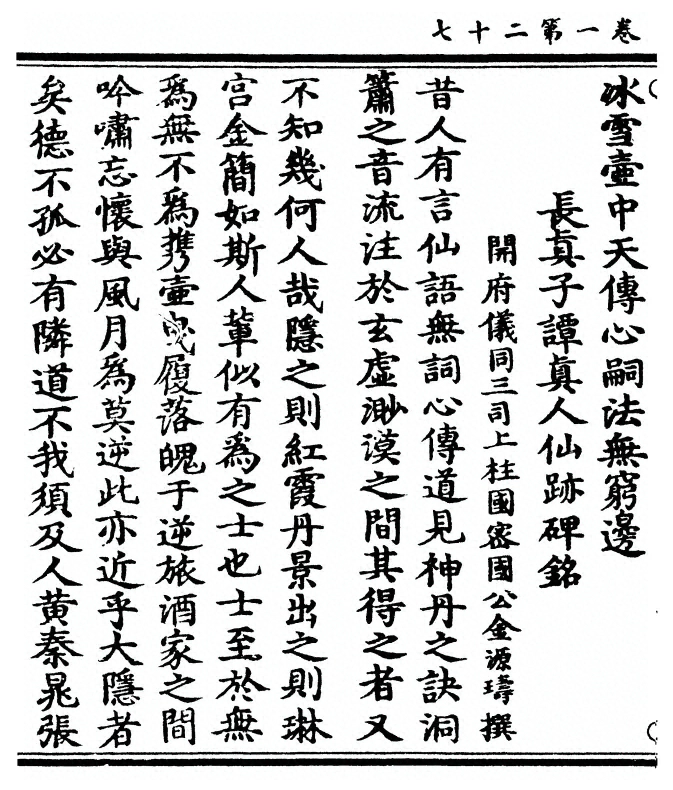 卷一第二十七
冰雪壺中天傳心嗣法無窮邊
長真子譚真人仙跡碑銘
開府儀同三司上柱國密國公金源璹撰
昔人有言仙語無詞心傳道見神丹之訣洞
簫之音流注於玄虛渺漠之間其得之者又
不知幾何人哉隱之則紅霞丹景出之則琳
宮金簡如斯人輩似有為之士也士至於無
為無不為携壺曵履落魄于逆旅酒家之間
吟嘯忘懷與風月為莫逆此亦近乎大隱者
矣德不孤必有隣道不我須及人黄秦晁張